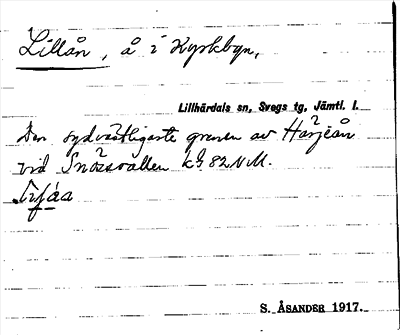 Lillån, å i Kyrkbyn,
Lillhärdals sn, Svegs tg, Jämtl. l.
Den sydvästligaste grenen av Härjeån
vid Snåssvallen kg. 82 NM.
S. ÅSANDER 1917.